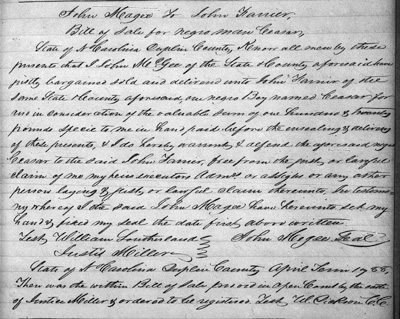 John Magee To John Farrier,
Bill of Sale for negro man Ceasar,
State of N Carolina Duplin County, Know all men by these
presents that I John McGee of the State & County aforesaid have
justly bargained sold and delivered unto John Farrier of the
same State & County aforesaid, one negro Boy named Ceasar for
me in consideration of the valuable sum of one Hundred & twenty
pounds specie to me in hand paid before the ensealing & delivery
of these presents, & I do hereby warranty & defend the aforesaid negro
Ceasar to the said John Farrier, free from the just, or lawful
claim of me my heirs executors Admrs or assigns or any other
person laying a just, or lawful claim thereunto. In testimo
ny whereof I the said John Magee have hereunto set my
hand & fixed my seal the date first above written
Test, William Southerland John Magee Seal
Justis Miller
State of N Carolina Duplin County April Term
Then was the written Bill of Sale proved in open Court by the oath
of Justice Miller & ordered to be registered Test, W. Dickson C.C.